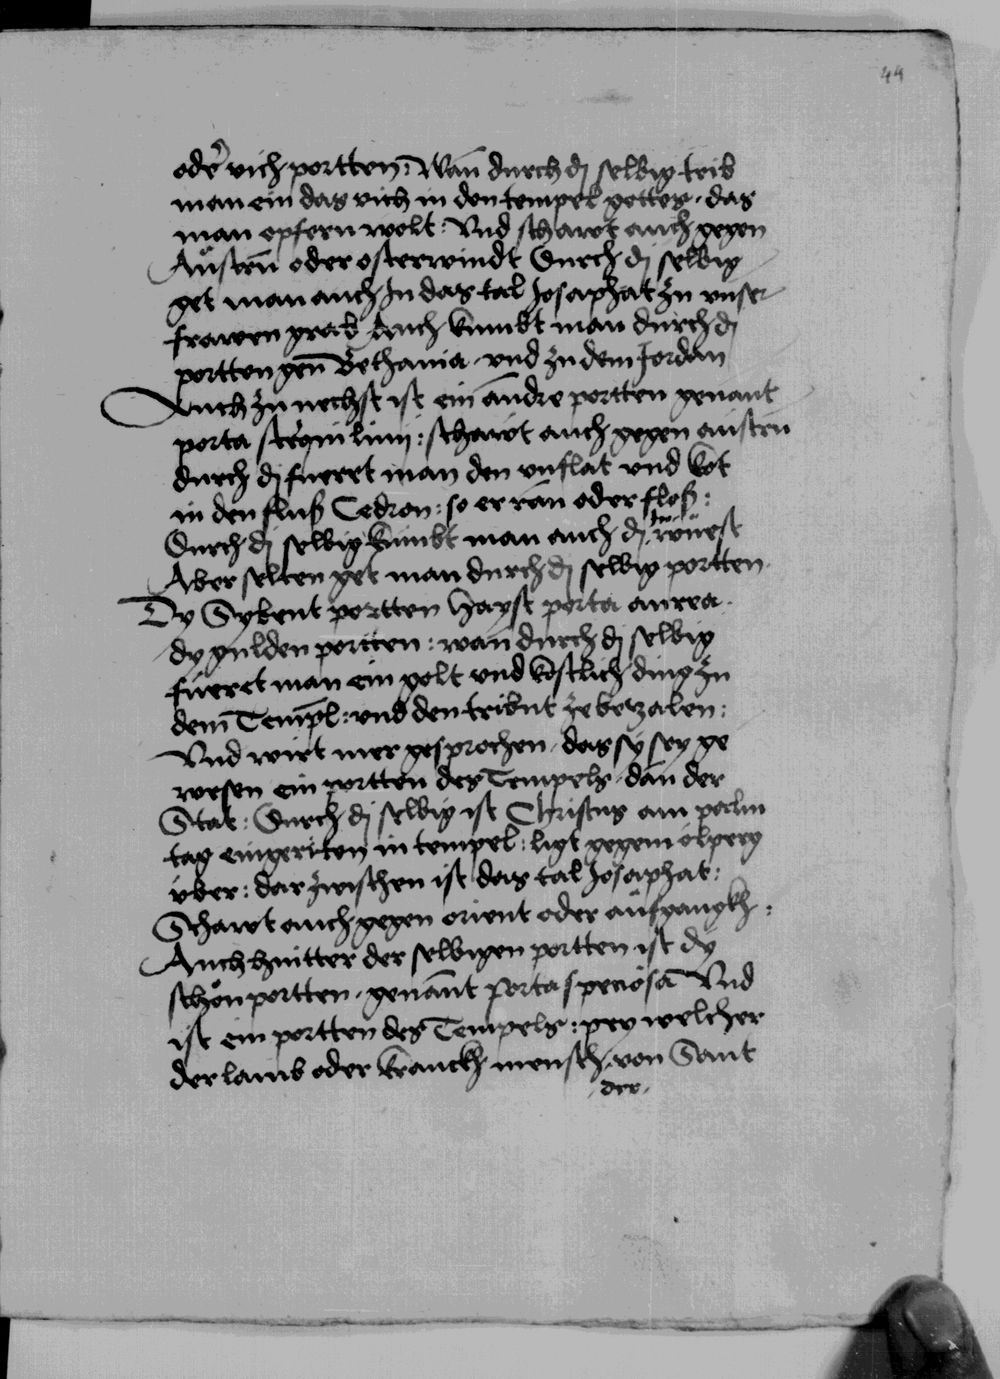 44
oder vich portten: Wan̄ durch dj selbig treib
man ein das vich in den tempel gottes · das
man opfern wolt: Vnd schawt auch gegen
Austrū oder osterwindt Durch dj selbig
get man auch In das tal Josaphat zu vnser
frawen grab Auch kumbt man durch dj
portten gen̄ Bethania · vnd zu dem Jordan
Auch zu nechst ist ein andre portten genant
porta sterquilinij: schawt auch gegen austrū
durch dj fueret man den vnflat vnd kot
in den fluß Cedron: so er ran oder floß:
Durch dj selbig kumbt man auch dj in wüest
Aber selten get man durch dj selbig portten
Dy Sybent portten hayst porta aurea ·
dy gulden portten: wan̄ durch dj selbig
fueret man ein golt vnd kostlich ding zu
dem Templ: vnd den tribut ze betzalen:
Vnd wirt mer gesprochen · das sy sey ge
wesen ein portten des Tempels · dan̄ der
Stat: Durch dj selbig ist Christus am palm
tag eingeriten in tempel: ligt gegem ölperg
über: dar zwischen ist das tal Josaphat:
Schawt auch gegen orient oder aufgangkh:
Auch hintter der selbigen portten ist dy
schön portten · genant Porta speciosa Vnd
ist ein portten des Tempels: pey welcher
der lamb oder kranckh mensch · von Sant
· der ·